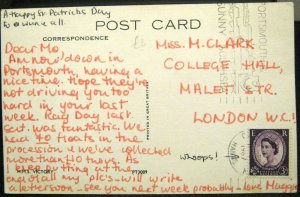 A Happy St. Patrick's Day
to @ wune all.
POST CARD
CORRESPONDENCE
Dear Mo,
Am now down in
Portsmouth, having a
nice time. Hope they're
not driving you too
hard in your last
week. Rag Day last
Sat. was fantastic. We
had 70 floats in the
procession & we've collected
more than 10 thous. As
I keep putting at the
end of all my p/c's - will write
a letter soon - see you next week probably - Love
Miss. M. CLARK
COLLEGE HALL,
MALET STR.
LONDON W.C.1
Whoops!
H.M.S. VICTORY
PT3009
PORTSMOUTH
SUNNY